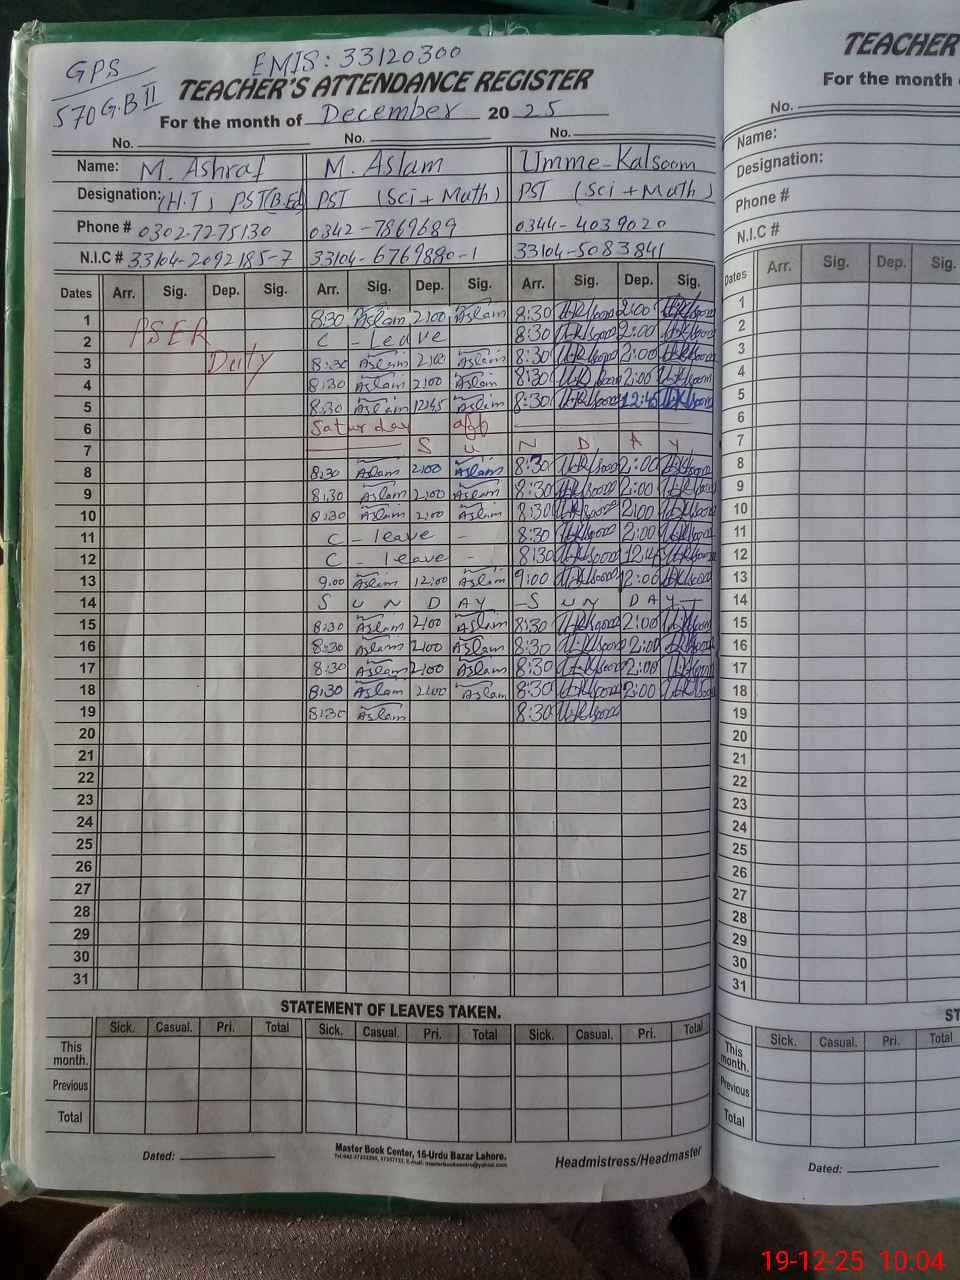 GPS
570 G.B II
EMIS: 33120300
TEACHER'S ATTENDANCE REGISTER
For the month of December 2025
No. No. No.
Name: M. Ashraf M. Aslam Umme-Kalsoom
Designation: (H.T) PST(B.Ed) PST (Sci + Math) PST (Sci + Math)
Phone # 0302-7275130 0342-7869689 0344-4039020
N.I.C # 33104-2092185-7 33104-6769880-1 33104-5083841
Dates Arr. Sig. Dep. Sig. Arr. Sig. Dep. Sig. Arr. Sig. Dep. Sig.
1 PSER 8:30 Aslam 2:00 Aslam 8:30 2:00
2 C - Leave 8:30 2:00
3 Duty 8:30 Aslam 2:00 Aslam 8:30 2:00
4 8:30 Aslam 2:00 Aslam 8:30 2:00
5 8:30 Aslam 12:45 Aslam 8:30 12:45
6 Saturday
7 S U N D A Y
8 8:30 Aslam 2:00 Aslam 8:30 2:00
9 8:30 Aslam 2:00 Aslam 8:30 2:00
10 8:30 Aslam 2:00 Aslam 8:30 2:00
11 C - leave - 8:30 2:00
12 C - leave 8:30 12:45
13 9:00 Aslam 12:00 Aslam 9:00 12:00
14 S U N D A Y - S U N D A Y -
15 8:30 Aslam 2:00 Aslam 8:30 2:00
16 8:30 Aslam 2:00 Aslam 8:30 2:00
17 8:30 Aslam 2:00 Aslam 8:30 2:00
18 8:30 Aslam 2:00 Aslam 8:30 2:00
19 8:30 Aslam 8:30
20
21
22
23
24
25
26
27
28
29
30
31
STATEMENT OF LEAVES TAKEN.
Sick. Casual. Pri. Total Sick. Casual. Pri. Total Sick. Casual. Pri. Total
This month.
Previous
Total
Dated:
Master Book Center, 16-Urdu Bazar Lahore.
Headmistress/Headmaster
TEACHER
For the month
No.
Name:
Designation:
Phone #
N.I.C #
Dates Arr. Sig. Dep. Sig.
1
2
3
4
5
6
7
8
9
10
11
12
13
14
15
16
17
18
19
20
21
22
23
24
25
26
27
28
29
30
31
ST
Sick. Casual. Pri. Total
This month.
Previous
Total
Dated:
19-12-25 10:04